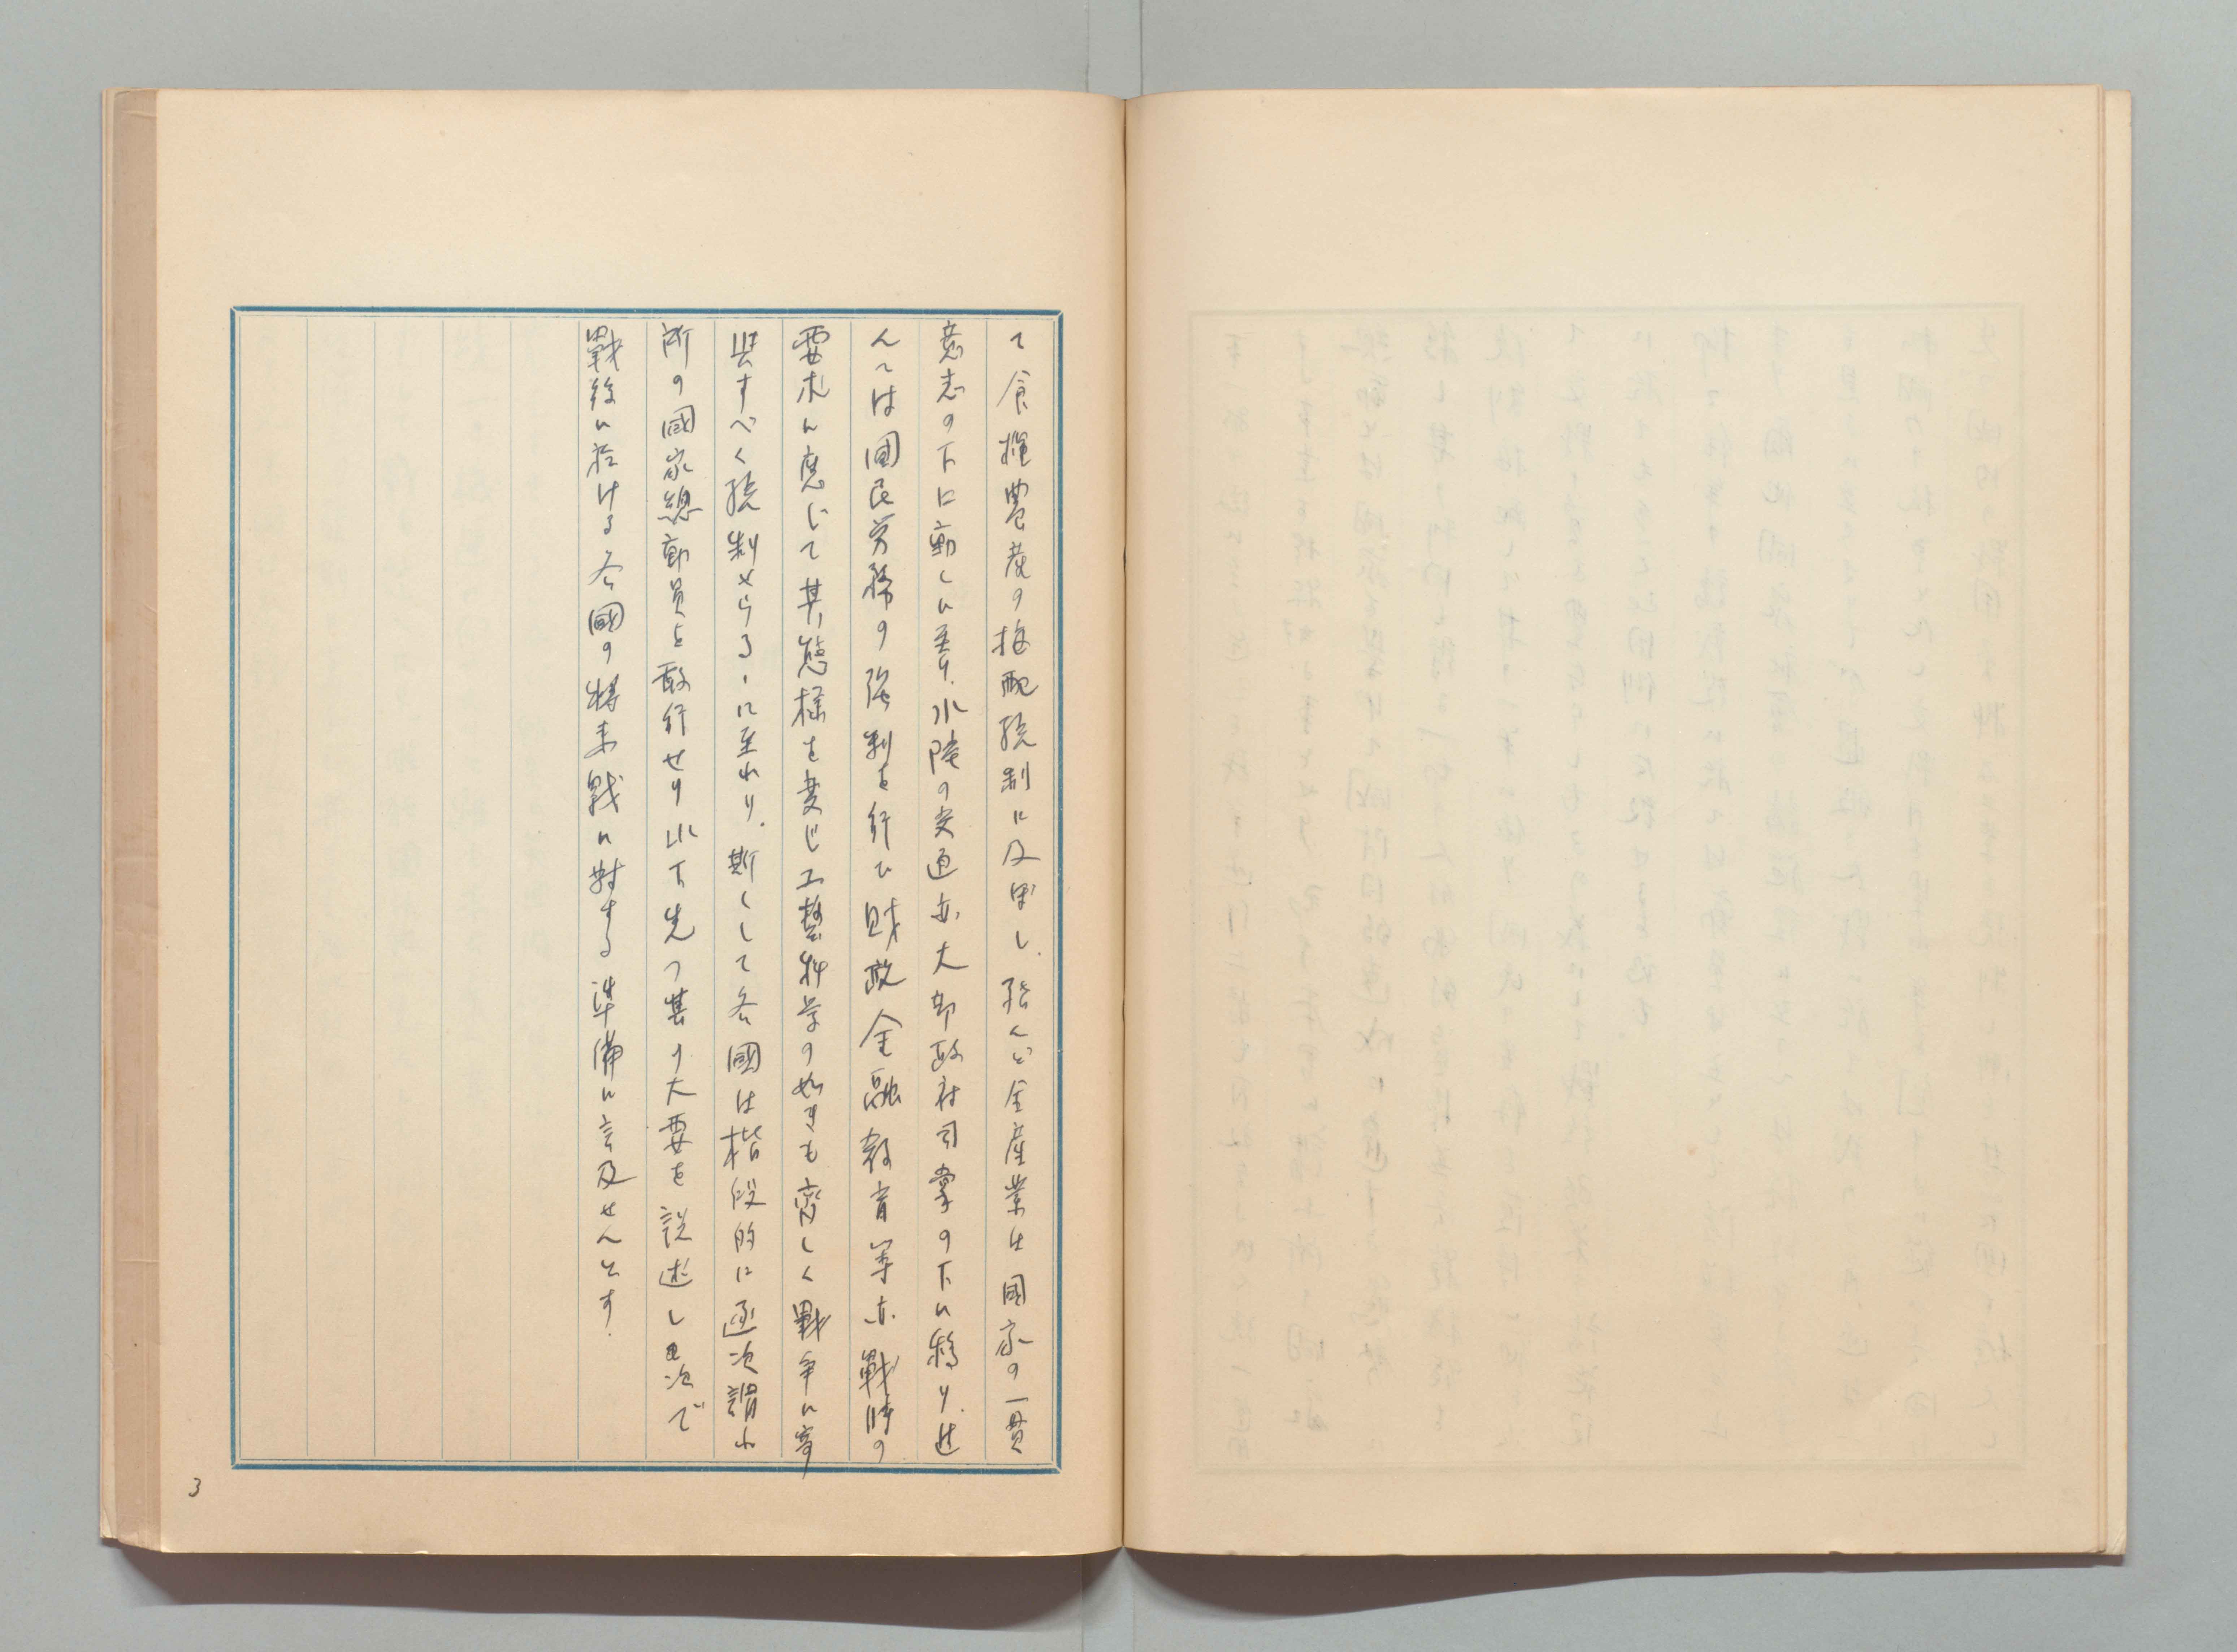 て食糧農産の按配統制に及ぼし.殆んど全産業は国家の一貫
意志の下に動くに至り.水陸の交通亦大部政府司掌の下に移り.進
んでは国民労務の強制を行ひ財政金融教育等亦戦時の
要求に應じて其態様を変じ工藝科学の如きも齊しく戦争に寄
與すべく統制せらるゝに至れり.斯くして各國は楷段的に逐次謂ふ
所の國家總動員を敢行せり以下先つ其の大要を説述し次で
戰後に於ける各國の将来戰に對する準備に言及せんとす.
3